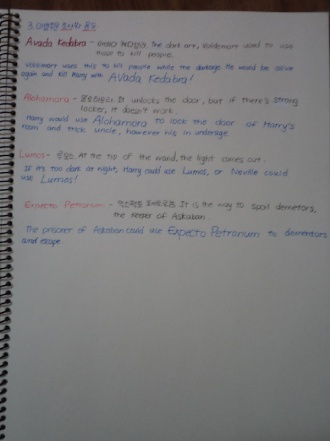 3. 마법주문 조사와 응용
Avada Kedabra - 아바다 케다브라. The dark art, Voldemort used to use
this to kill people.
Voldemort uses this to kill people while the damage. He would be alive
again and kill Harry with AVada Kedabra!
Alohamora - 알로하모라. It unlocks the door, but if there's strong
locker, it doesn't work.
Harry would use Alohamora to lock the door of Harry's
room and trick uncle, however his in underage.
Lumos - 루모스. At the tip of the wand, the light comes out.
If it's too dark at night, Harry could use Lumos, or Neville could
use Lumos!
Expecto Petronum - 익스펙토 패트로눔. It is the way to spell demetors,
the keeper of Askaban.
The prisoner of Askaban could use Expecto Petronum to dementors
and escape.